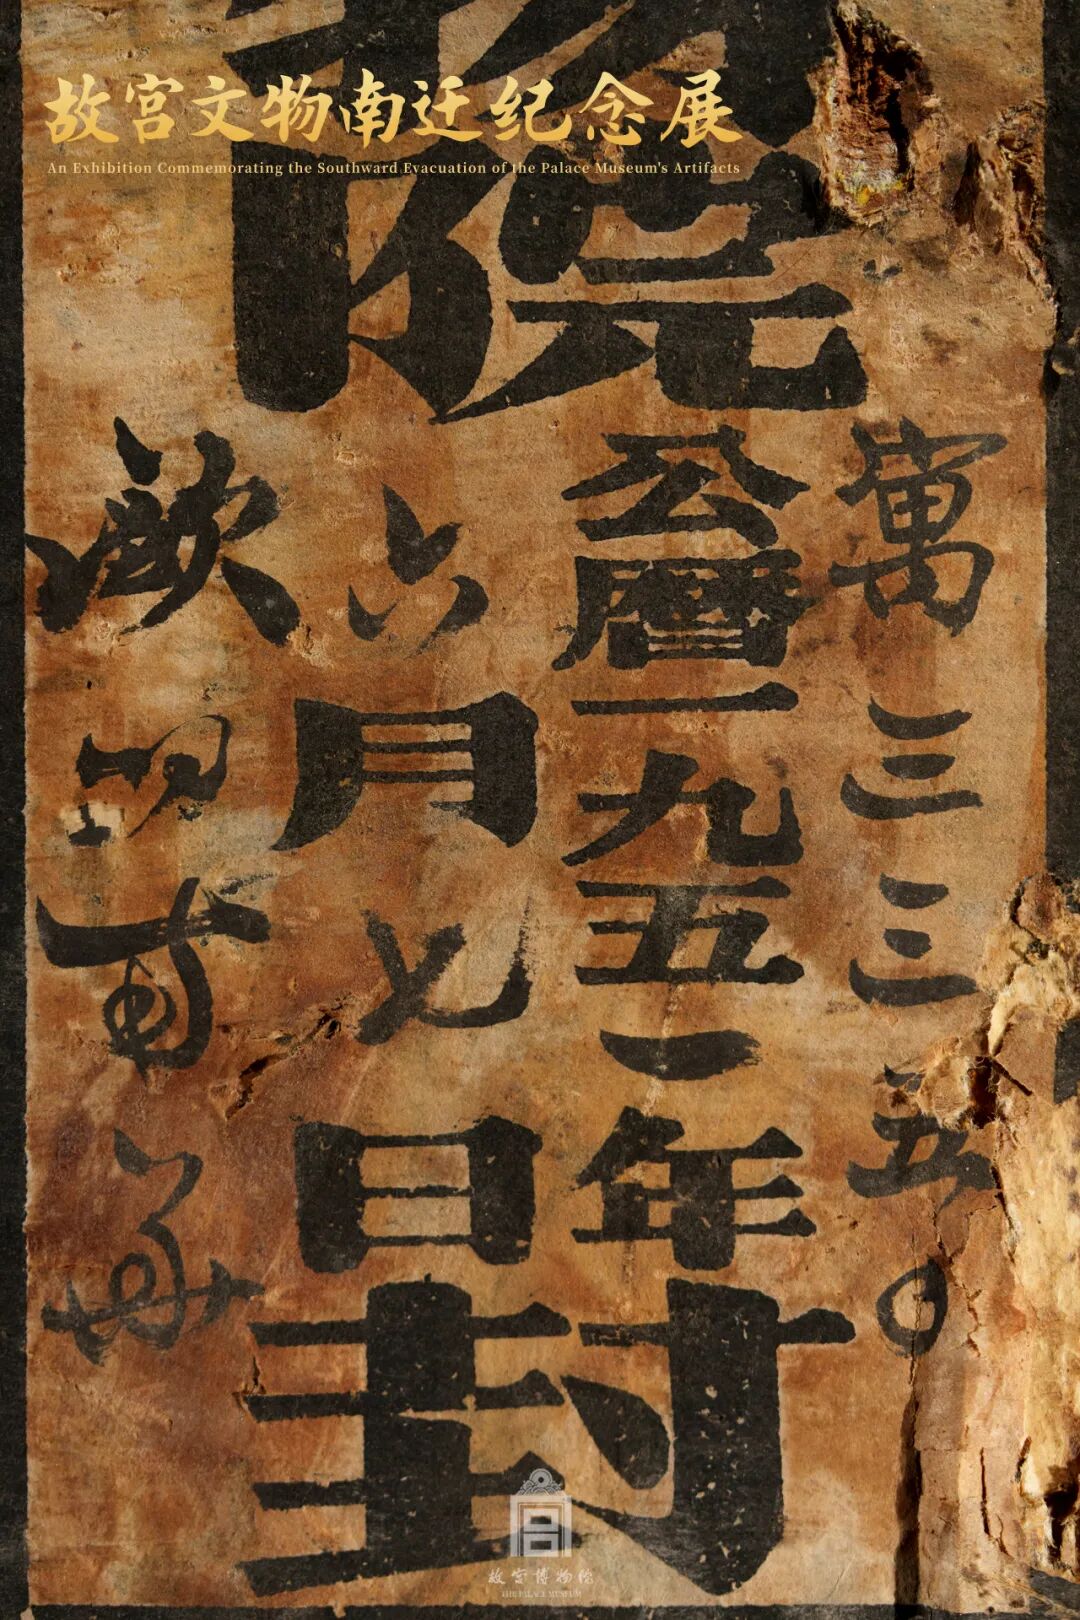 故宫文物南迁纪念展
An Exhibition Commemorating the Southward Evacuation of the Palace Museum's Artifacts
院
寓三三五〇
公曆一九五一年
六月七日
封
故宫博物院
THE PALACE MUSEUM